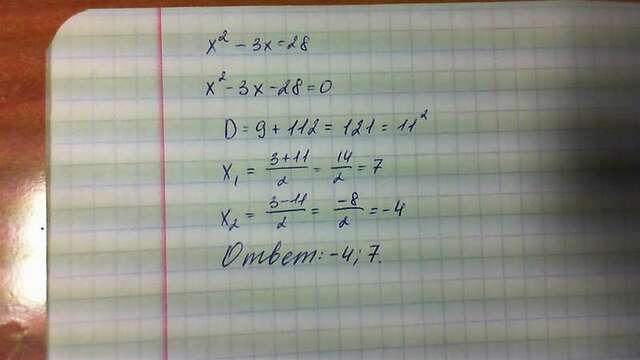 x² - 3x = 28
x² - 3x - 28 = 0
D = 9 + 112 = 121 = 11²
x₁ = (3+11)/2 = 14/2 = 7
x₂ = (3-11)/2 = -8/2 = -4
Ответ: -4; 7.